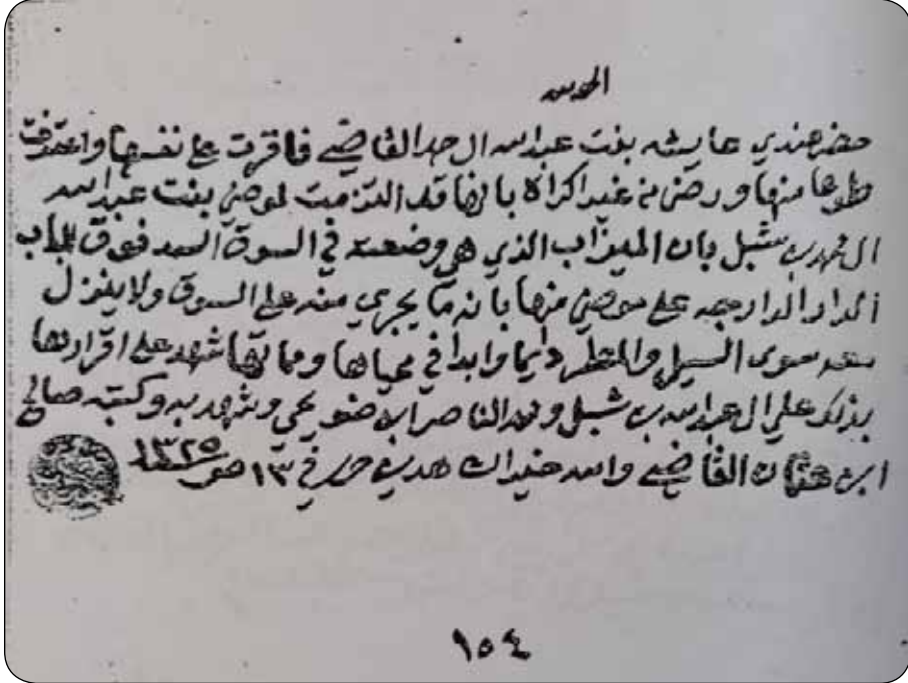 الحمد لله
حضر عندي عايشه بنت عبدالله ال حمد القاضي فاقرت على نفسها واعترفت
طوعا منها ورضى من غير اكراه بانها قد التزمت لموضي بنت عبدالله
ال فهد بن شبل بان الميزاب الذي هي وضعته في السوق السد فوق الباب
الدار الدارجه على موضي منها بانه ما يجري منه على السوق ولا ينزل
معه سوى السيل والمطر دايما وابدا في محياها ومماتها شهد على اقرارها
بذلك علي ال عبدالله بن شبل وحمد الناصر ابن ضويحي وشهد به وكتبه صالح
ابن عثمان القاضي والله خير الشاهدين حرر في ١٣ صفر ١٣٢٥
١٥٤